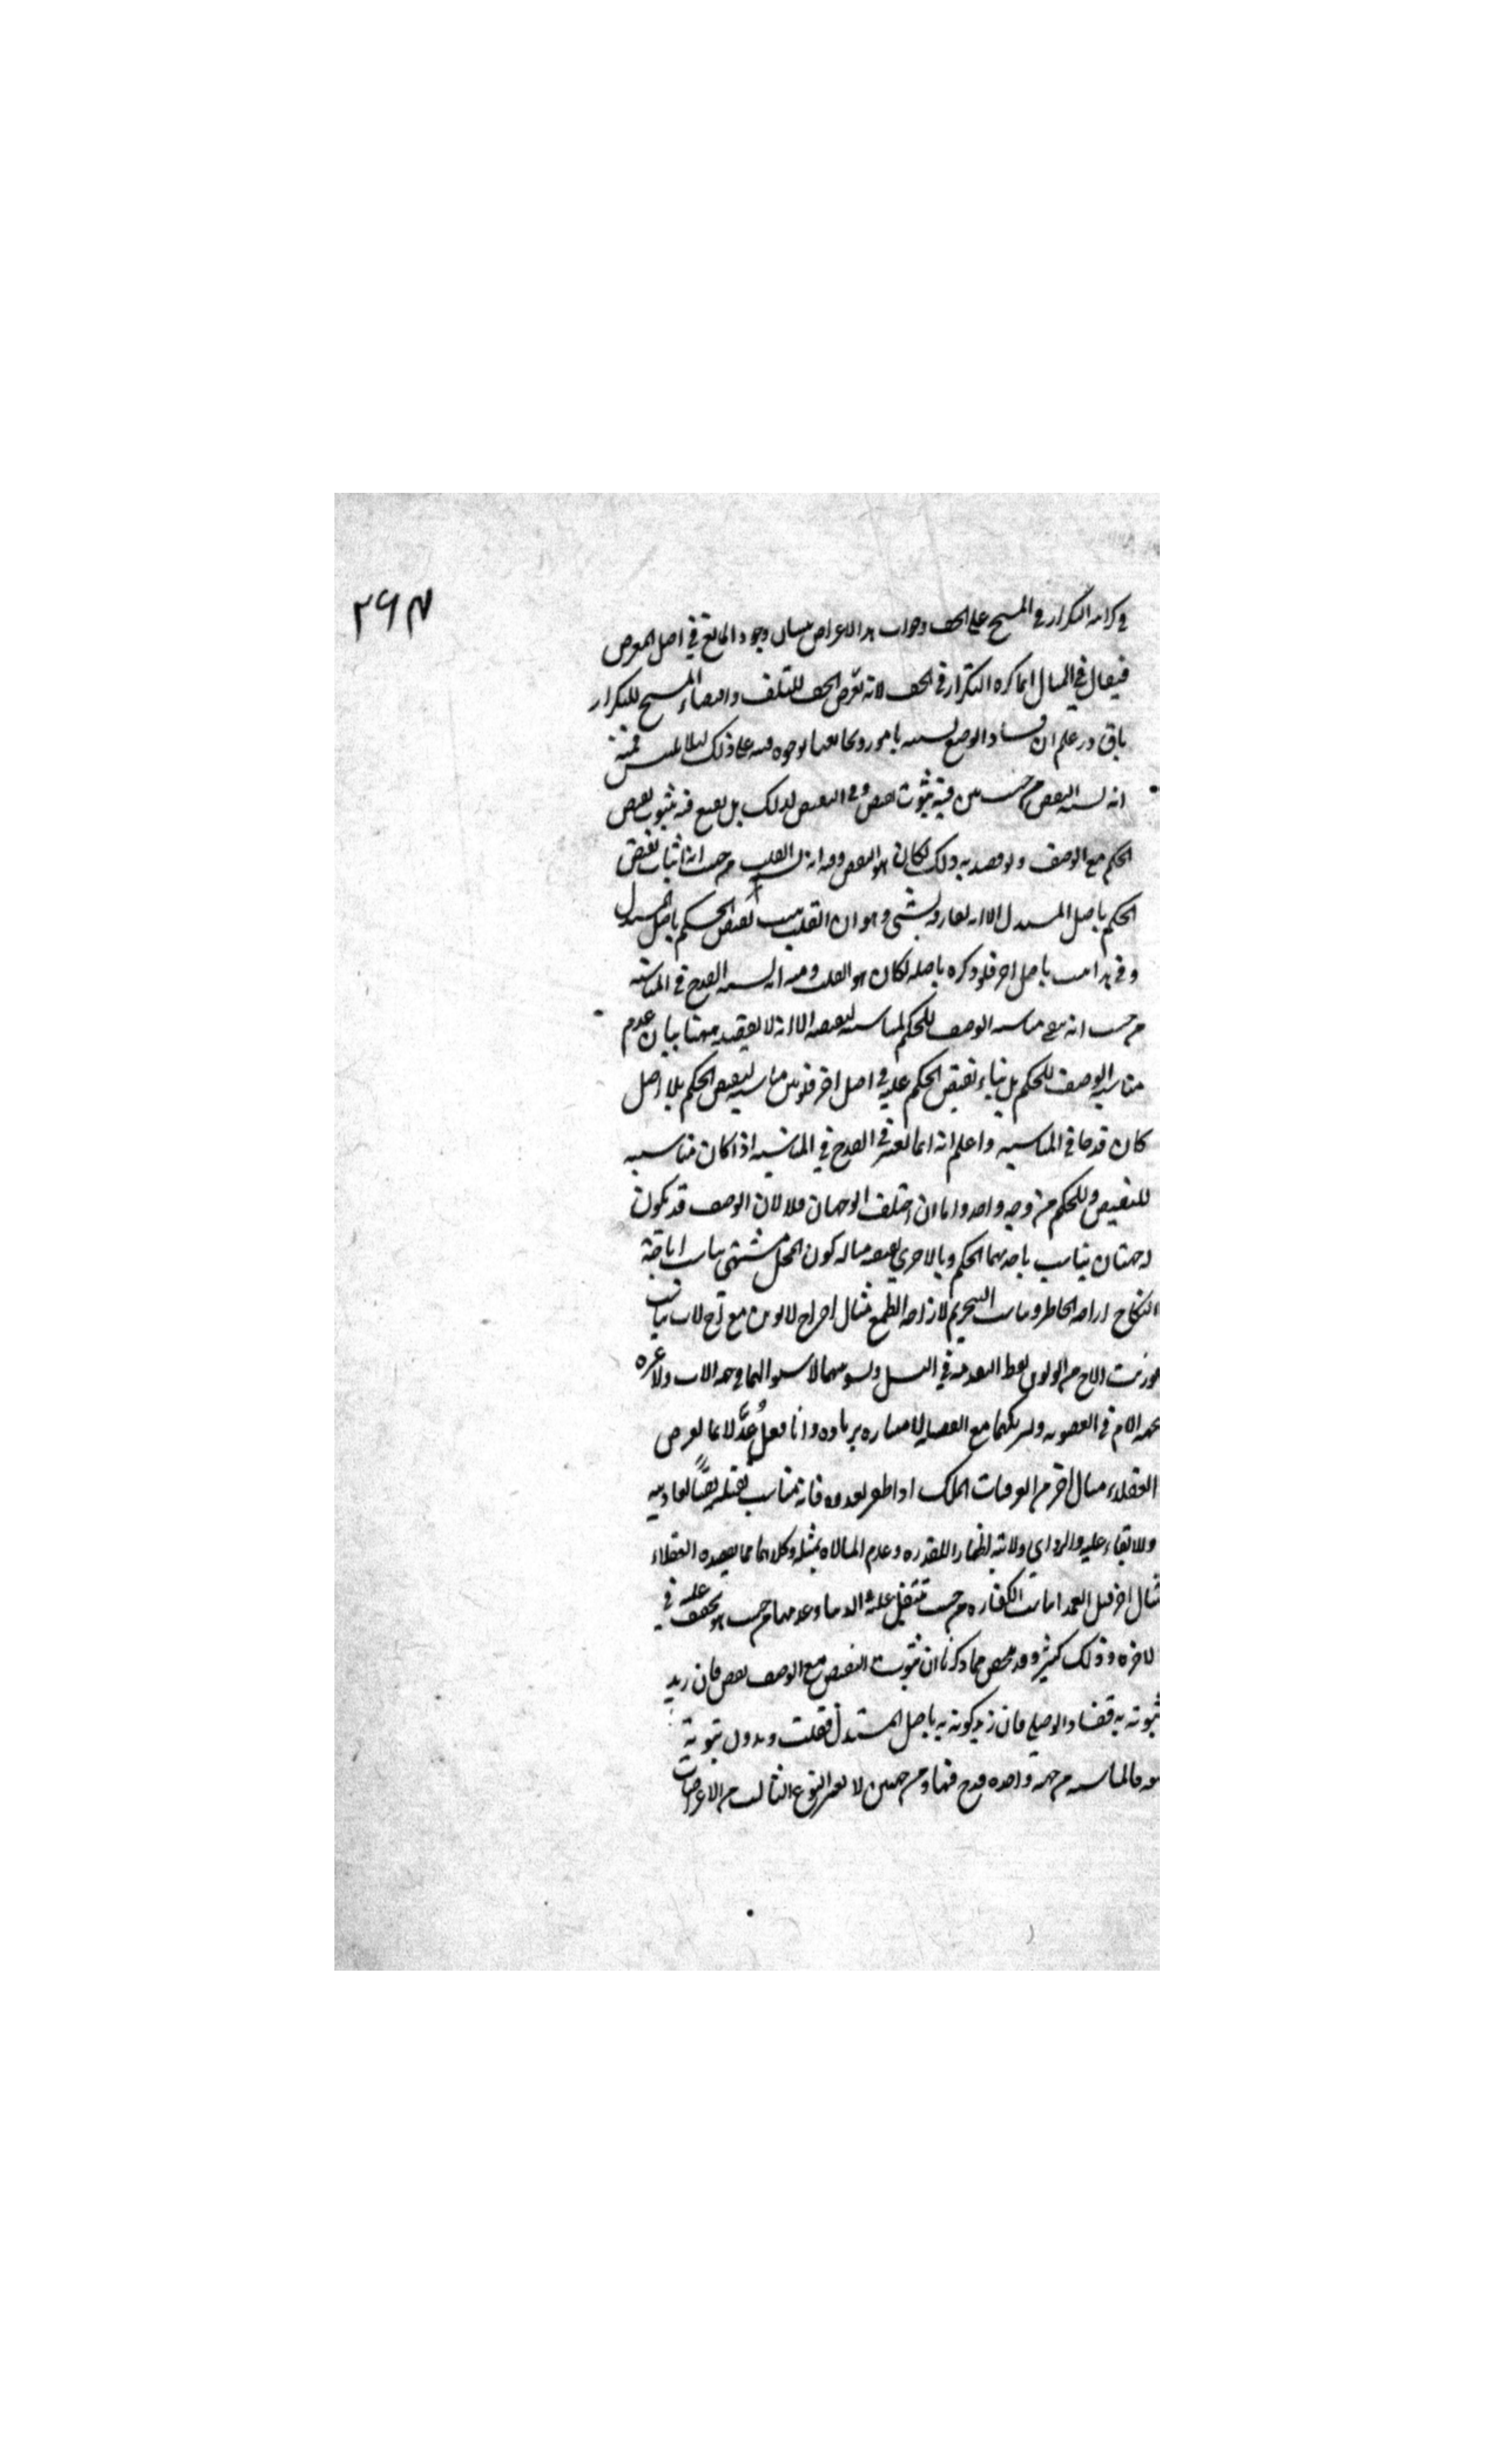 ٢٦٣
في كراهة التكرار في المسح على الخف وجواب هذا الاعتراض ببيان وجود المانع في اصل المعترض
فيقال في المثال انما كره التكرار في الخف لانه تعرض الخف للتلف واقتضاء المسح للتكرار
باق واعلم ان فساد الوضع يشتبه بامور ويخالفها بوجوه فنبه على ذلك لئلا يلتبس فمنه
انه يشبه النقض من حيث بين فيه ثبوت نقيض الوصف بل يقنع فيه بثبوت نقيض
الحكم مع الوصف ولو قصد به ذلك لكان هو النقض ومنه انه يشبه القلب من حيث انه اثبات نقيض
الحكم باصل المستدل الا انه يفارقه بشي وهو ان القلب يثبت نقيض الحكم باصل المستدل
وفي هذا يثبت باصل اخر فلو ذكره باصله لكان هو القلب ومنه انه يشبه القدح في المناسبة
من حيث انه ينفي مناسبة الوصف للحكم لمناسبته لنقيضه الا انه لا يقصد ههنا بيان عدم
مناسبة الوصف للحكم بل بناء نقيض الحكم عليه في اصل اخر فلو بين مناسبته لنقيض الحكم بلا اصل
كان قدحا في المناسبة واعلم انه انما يعتبر القدح في المناسبة اذا كان مناسبته
للنقيض وللحكم من وجه واحد واما ان اختلف الوجهان فلا لان الوصف قد يكون
له جهتان يناسب باحدهما الحكم وبالاخرى نقيضه مثاله كون المحل مشتهى يناسب اباحة
النكاح لاراحة الخاطر ويناسب التحريم لازاحة الطمع مثال اخر اخ لابوين مع اخ لاب يناسب
الاخ من الابوين التقدمة في وتسويتهما لاستوائهما في جهة الاب ولا عبرة
بجهة الام في العصوبة
العقلاء مثال اخر من العرفيات الملك اذا ظفر بعدوه فانه يناسب قتله نفيا لعاديته
والابقاء عليه والرد الى ولايته اظهارا للقدرة وعدم المبالاة بمثله وكلاهما مما يقصده العقلاء
مثال اخر قتل العمد الكفارة من حيث تثقيل عليه في الدنيا وعدمها من حيث هو تخفف عليه في
الاخرة وذلك كثير وقد تلخص مما ذكرنا ان ثبوت النقيض مع الوصف نقض فان زيد
ثبوته به ففساد الوضع فان زيد كونه به باصل المستدل فقلب وبدون ثبوته
معه فالمناسبة من جهة واحدة قدح فيها ومن جهتين لا يعتبر النوع الثالث من الاعتراضات